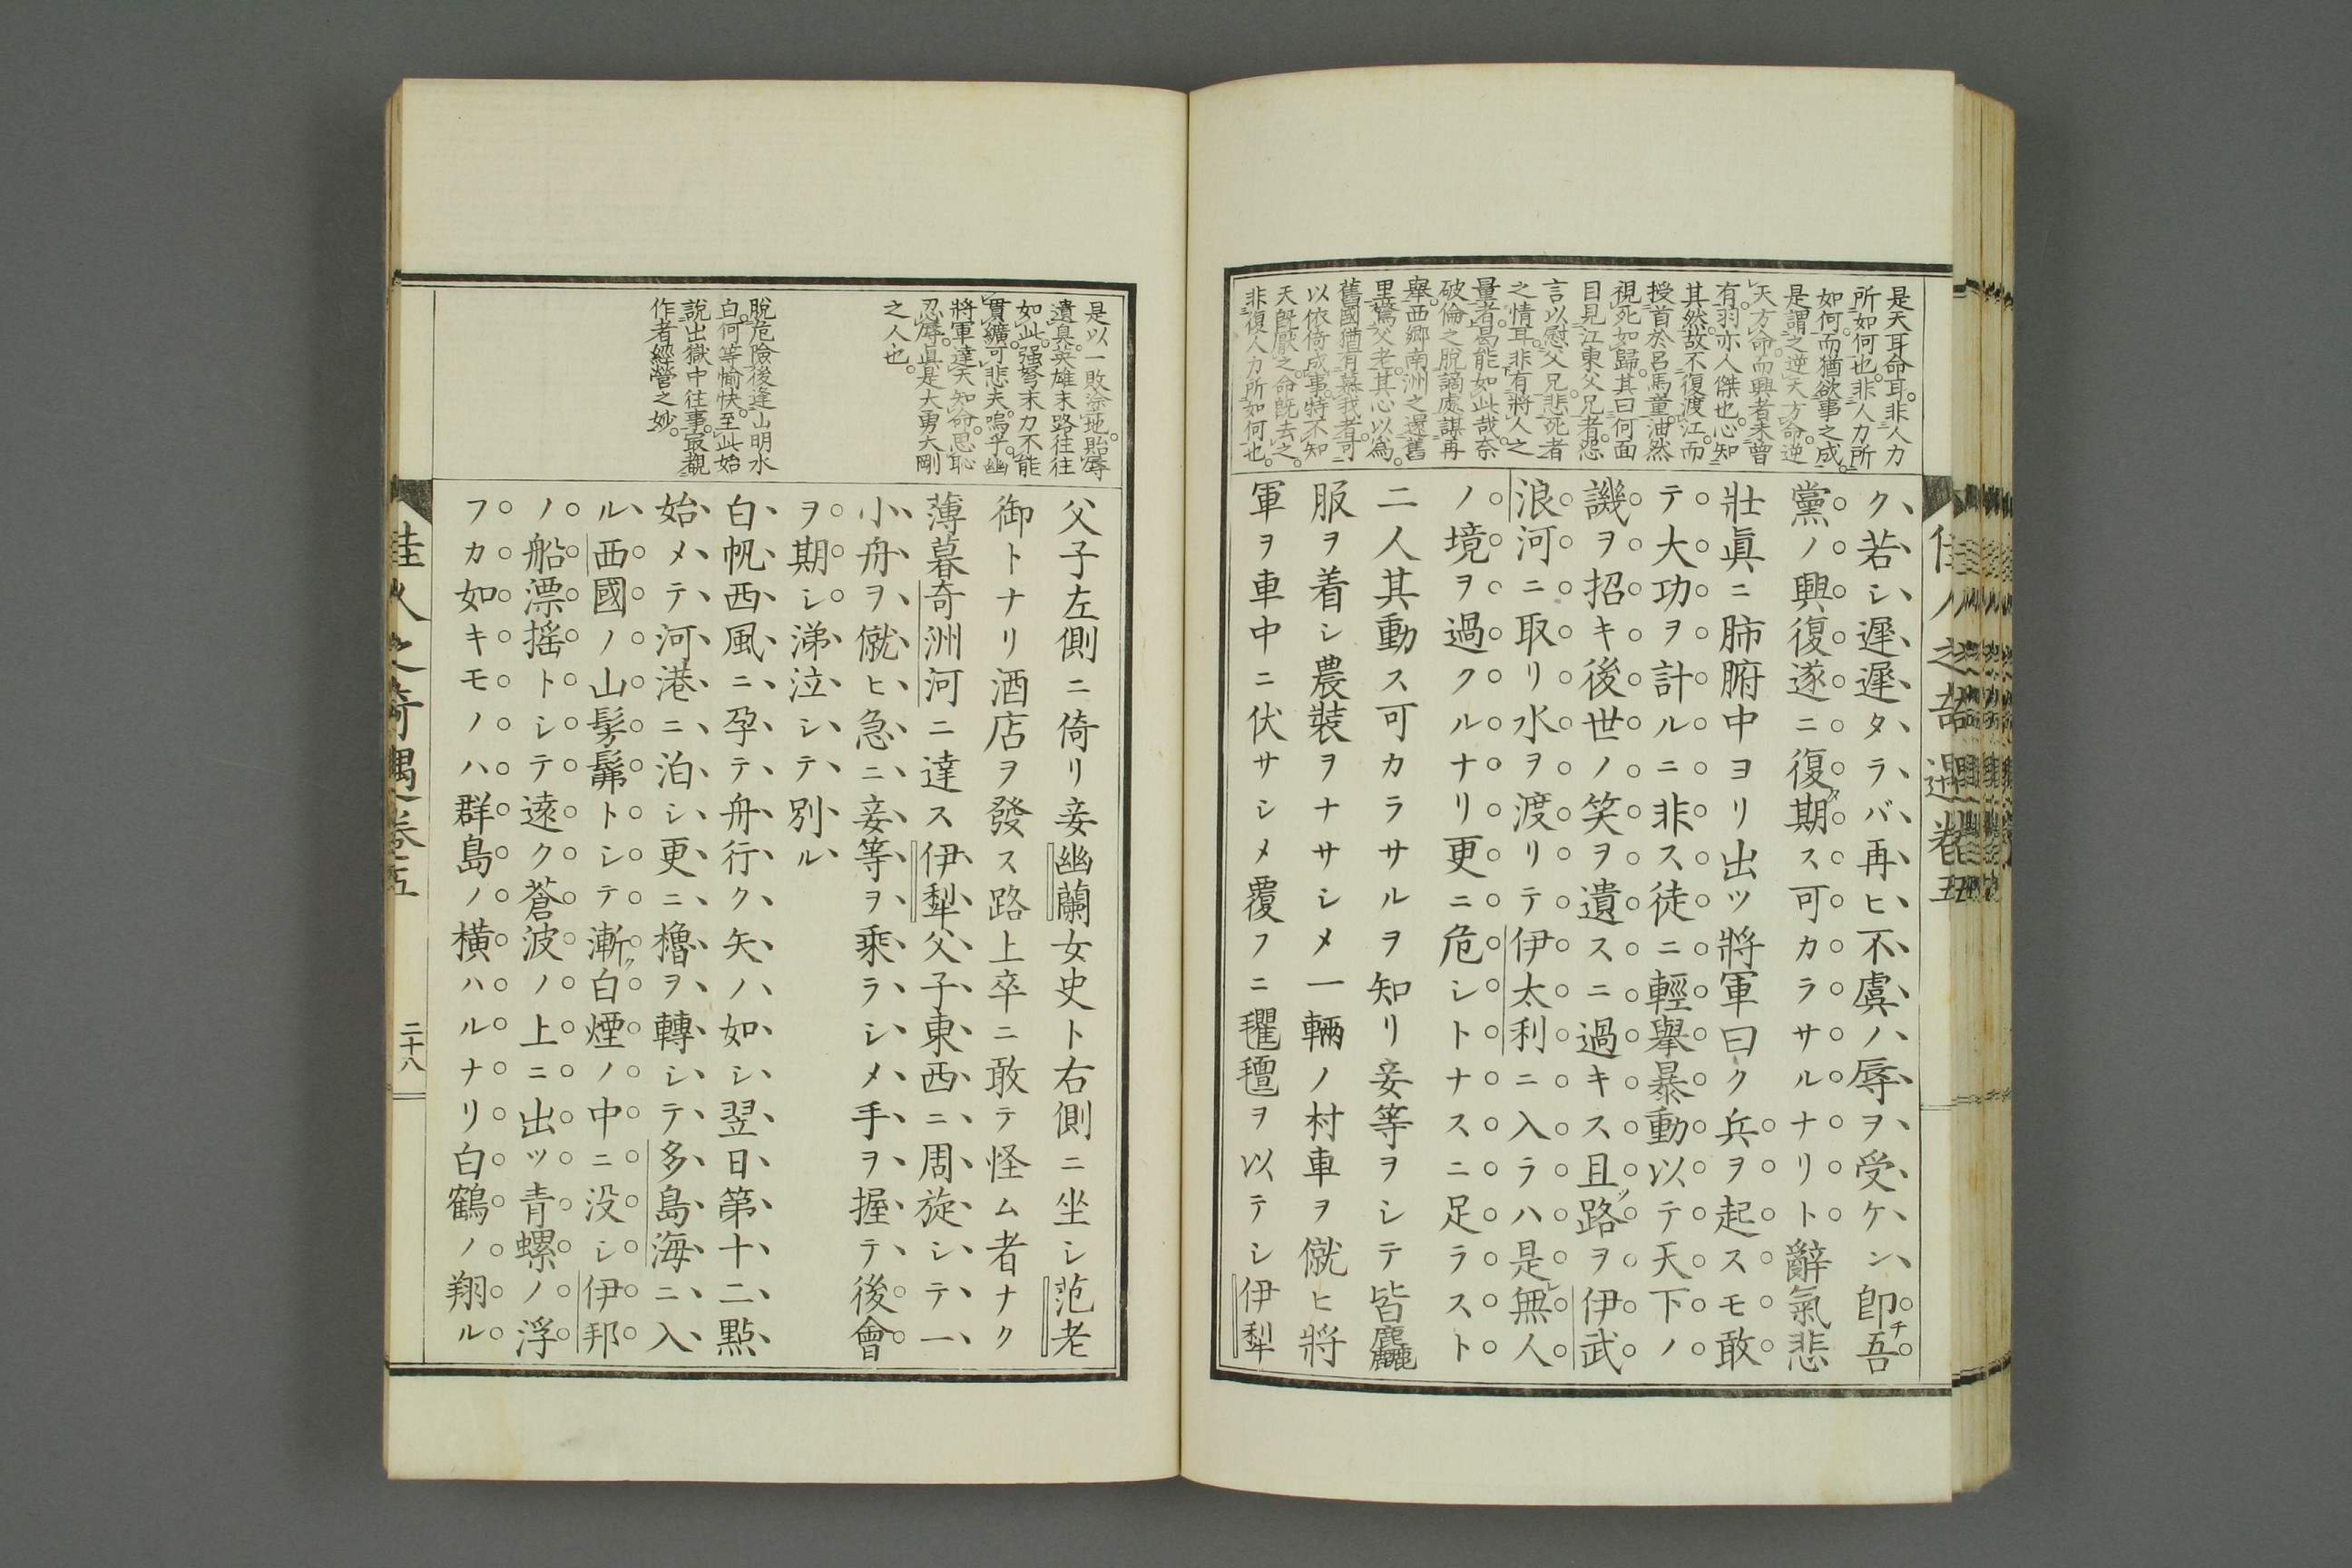 是天耳命耳非人力
所如何也非人力所
如何而猶欲事之成
是謂之逆天方命逆
天方命而興者未曾
有羽亦人傑也心知
其然故不復渡江而
授首於呂馬董油然
視死如歸其曰何面
目見江東父兄者忽
言以慰父兄悲死者
之情耳非有將人之
量者曷能如此哉奈
破倫之脫謫處謀再
擧西郷南洲之還舊
里驚父老其心以為
舊國猶有慕我者可
以依倚成事特不知
天既厭之命既去之
非復人力所如何也
ク若シ遲遲タラバ再ヒ不虞ノ辱ヲ受ケン卽チ吾
黨ノ興復遂ニ復タ期ス可カラサルナリト辭氣悲
壯眞ニ肺腑中ヨリ出ツ將軍曰ク兵ヲ起スモ敢
テ大功ヲ計ルニ非ス徒ニ輕擧暴動以テ天下ノ
譏ヲ招キ後世ノ笑ヲ遺スニ過キス且ツ路ヲ伊武
浪河ニ取リ水ヲ渡リテ伊太利ニ入ラハ是レ無人
ノ境ヲ過クルナリ更ニ危シトナスニ足ラスト
二人其動ス可カラサルヲ知リ妾等ヲシテ皆麤
服ヲ着シ農裝ヲナサシメ一輛ノ村車ヲ僦ヒ將
軍ヲ車中ニ伏サシメ覆フニ氍氊ヲ以テシ伊犁
佳人之奇遇卷五
是以一敗塗地貽辱
遺臭英雄末路往往
如此强弩末力不能
貫纊可悲夫嗚乎幽
將軍達天知命思恥
忍辱眞是大勇大剛
之人也
脫危險後逢山明水
白何等愉快至此始
說出獄中往事最覯
作者經營之妙
父子左側ニ倚リ妾幽蘭女史ト右側ニ坐シ范老
御トナリ酒店ヲ發ス路上卒ニ敢テ怪ム者ナク
薄暮奇洲河ニ達ス伊犁父子東西ニ周旋シテ一
小舟ヲ僦ヒ急ニ妾等ヲ乘ラシメ手ヲ握テ後會
ヲ期シ涕泣シテ別ル
白帆西風ニ孕テ舟行ク矢ノ如シ翌日第十二點
始メテ河港ニ泊シ更ニ櫓ヲ轉シテ多島海ニ入
ル西國ノ山髣髴トシテ漸ク白煙ノ中ニ沒シ伊邦
ノ船漂搖トシテ遠ク蒼波ノ上ニ出ツ靑螺ノ浮
フカ如キモノハ群島ノ橫ハルナリ白鶴ノ翔ル
佳人之奇遇卷五
二十八